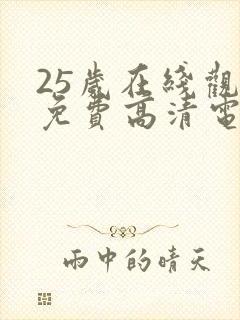 25歲在綫觀
免費高清電
雨中的晴天